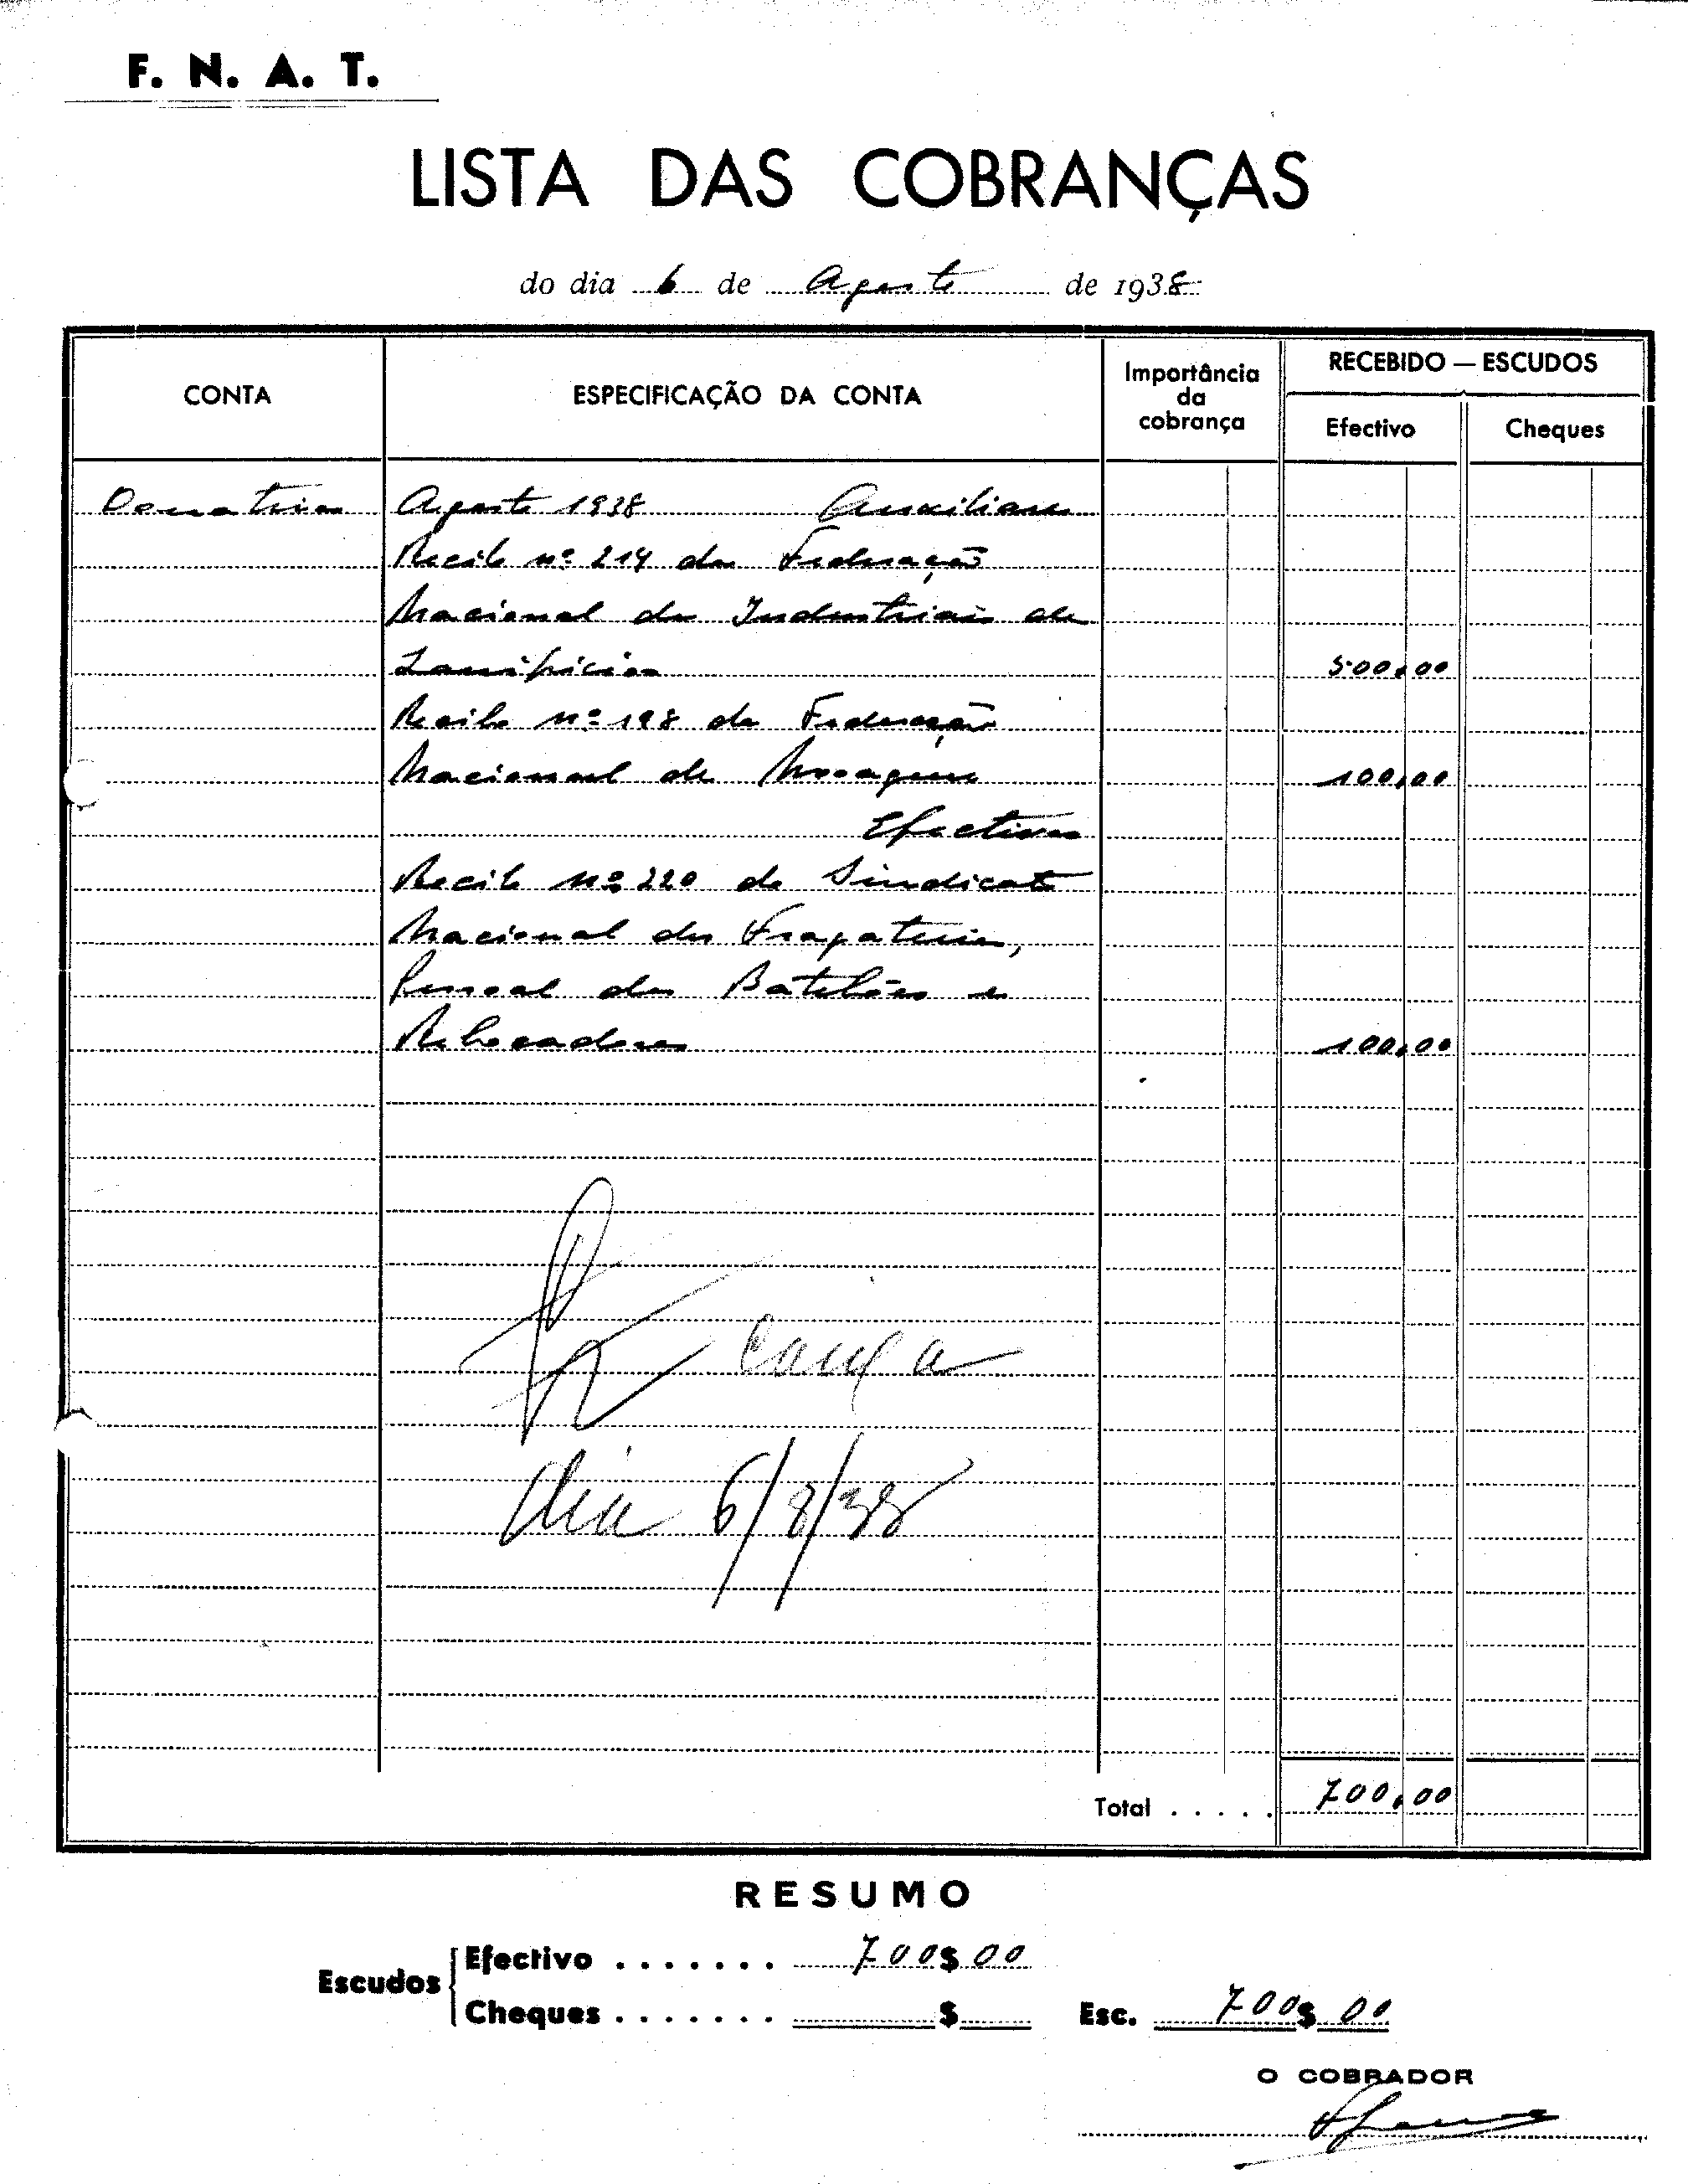 F. N. A. T.
LISTA DAS COBRANÇAS
do dia 6 de Agosto de 1938
CONTA
ESPECIFICAÇÃO DA CONTA
Importância
da
cobrança
RECEBIDO — ESCUDOS
Efectivo
Cheques
Donativos Agosto 1938 Auxiliares
Recibo nº 214 da Federação
Nacional dos Industriais de
Lanifícios 500,00
Recibo nº 198 da Federação
Nacional de Moagens 100,00
Efectivos
Recibo nº 220 do Sindicato
Nacional dos Fragateiros,
Pessoal dos Batelões e
Rebocadores 100,00
Caixa
Dia 6/8/38
Total . . . . . 700,00
RESUMO
Escudos
Efectivo . . . . . . . 700$00
Cheques . . . . . . . $
Esc. 700$00
O COBRADOR